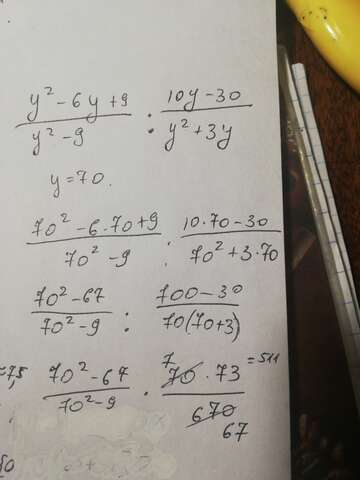 y² - 6y + 9 / y² - 9 : 10y - 30 / y² + 3y
y = 70.
70² - 6·70 + 9 / 70² - 9 : 10·70 - 30 / 70² + 3·70
70² - 67 / 70² - 9 : 700 - 30 / 70(70+3)
=7,5 70² - 67 / 70² - 9 · 7 70 · 73 / 670 67 = 511